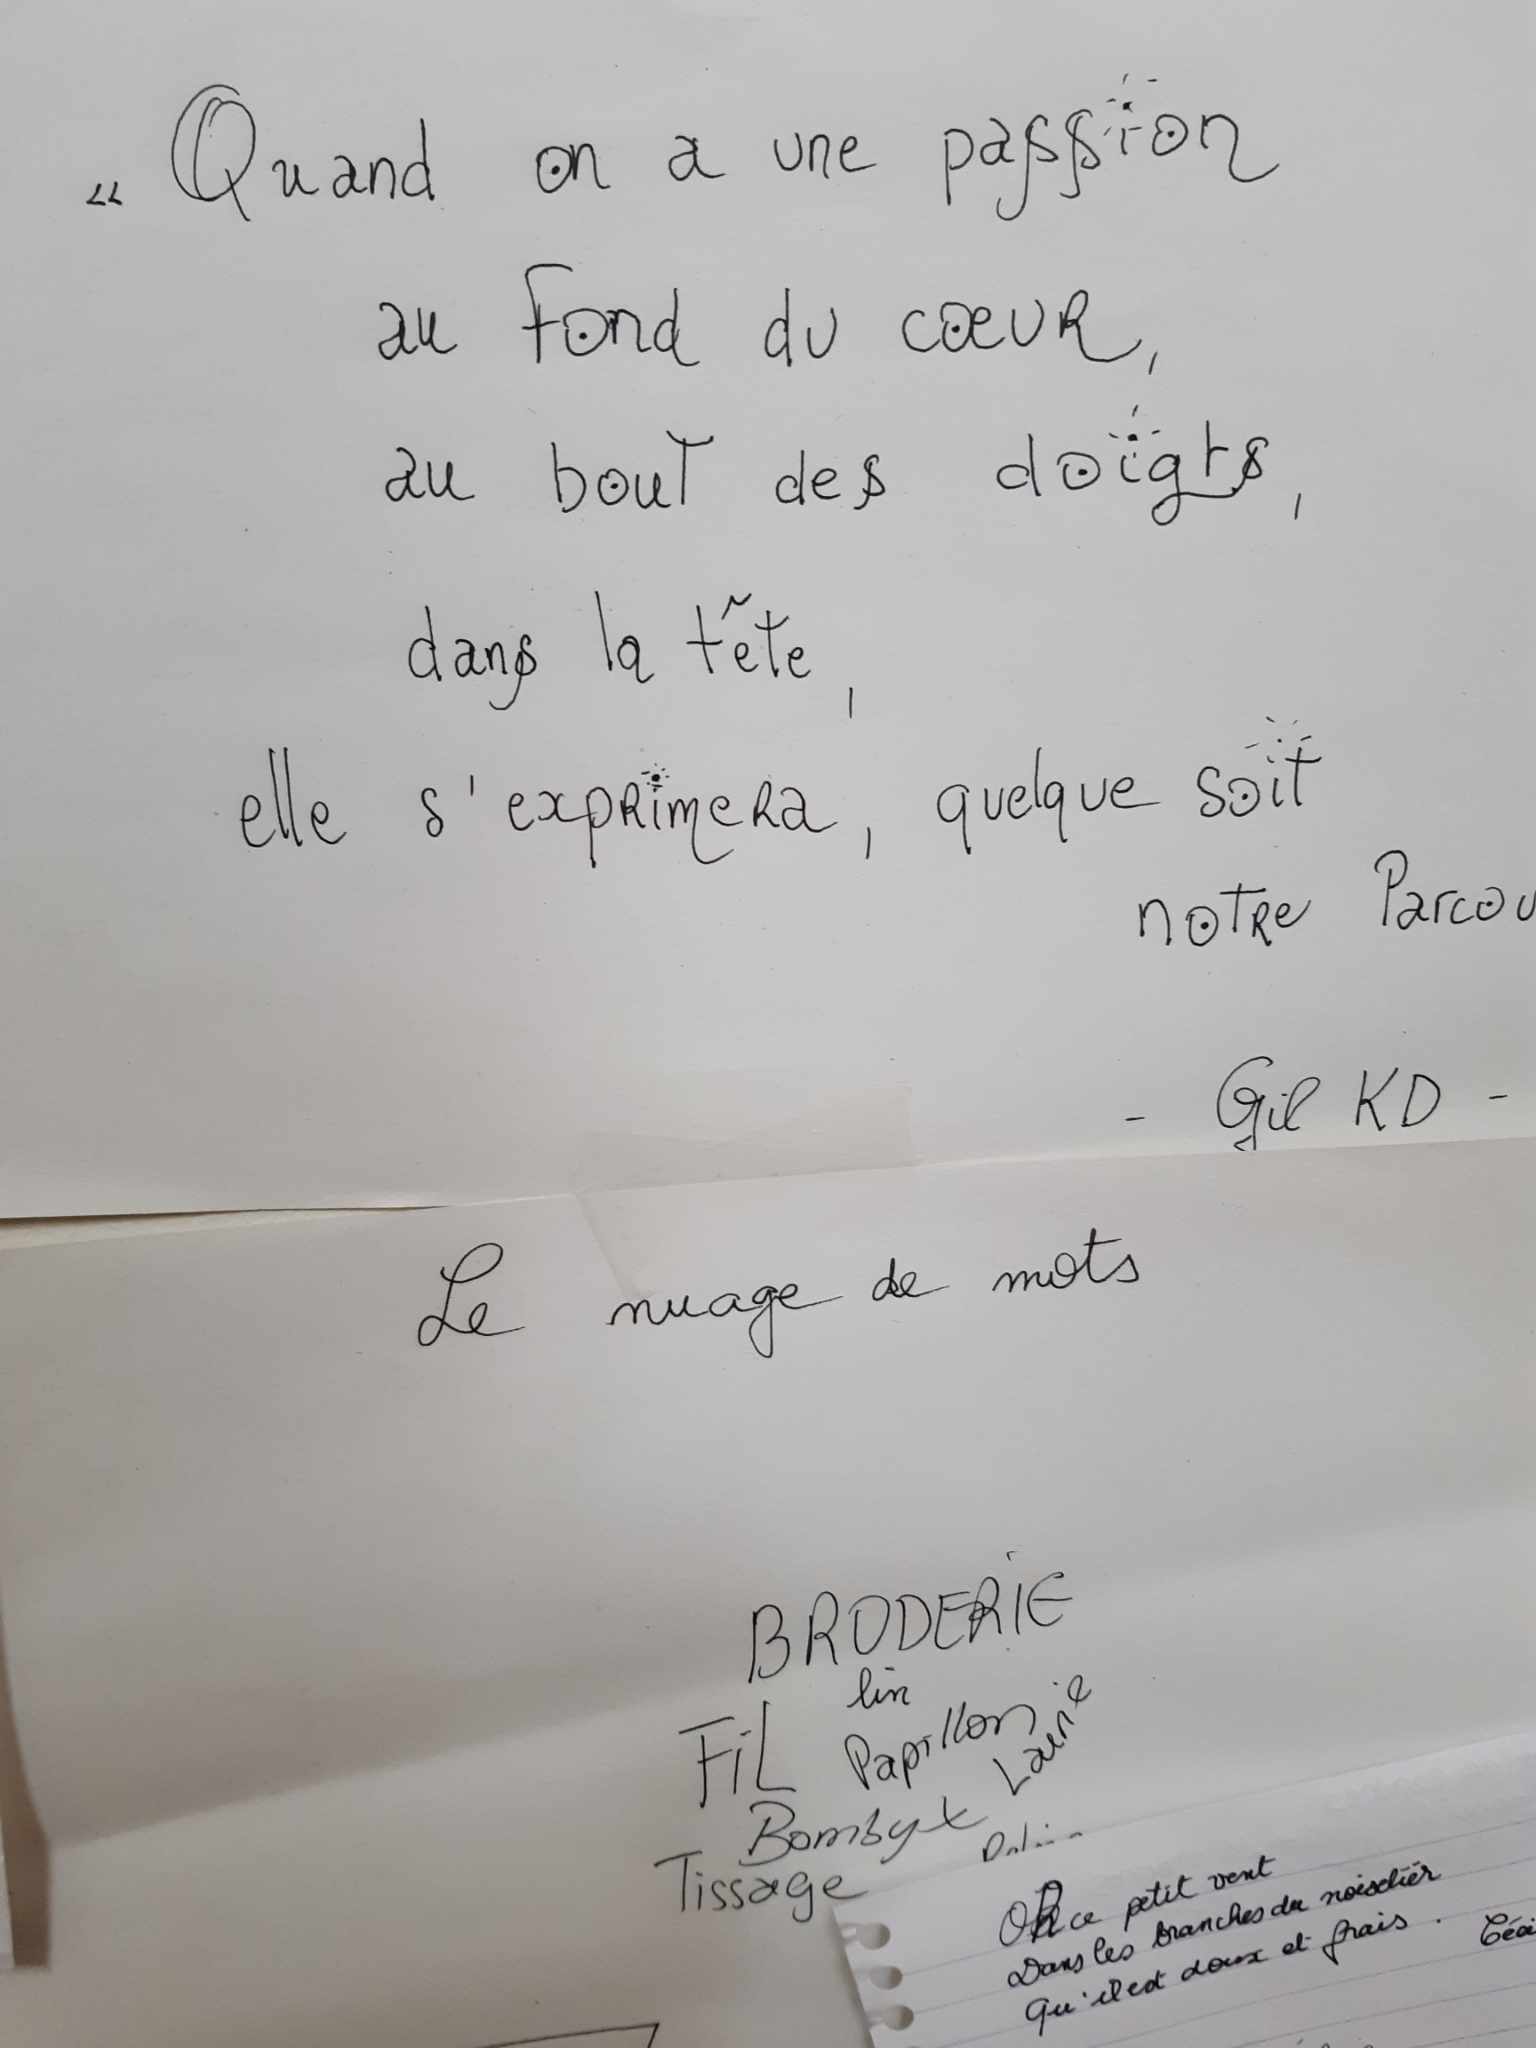 “ Quand on a une passion
au fond du cœur,
au bout des doigts,
dans la tête,
elle s'exprimera, quelque soit
notre Parcou
- Gil KD -
Le nuage de mots
BRODERIE
lin
FIL Papillon Laurie
Bombyx
Tissage
ce petit vent
Dans les branches du noisetier
Qu'il est doux et frais.